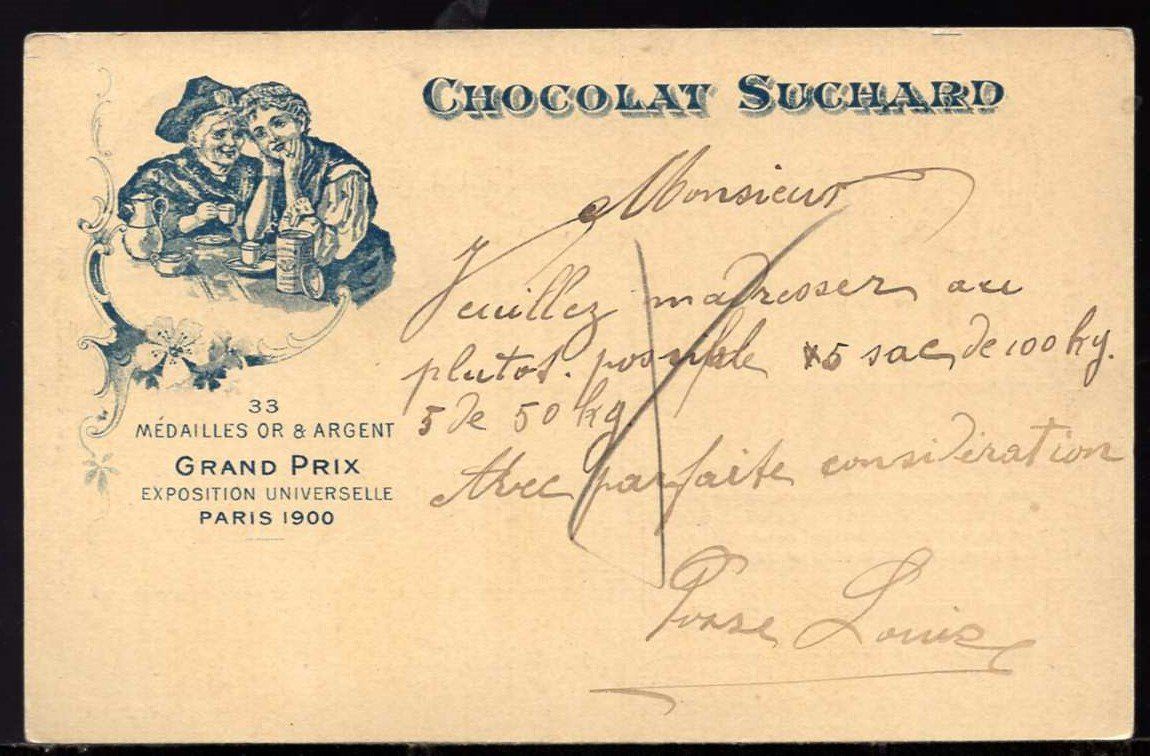 CHOCOLAT SUCHARD
Monsieur
Veuillez madresser au
plutot. possible 5 sac de 100 kg.
5 de 50 kg
Avec parfaite considération
Louis
33
MÉDAILLES OR & ARGENT
GRAND PRIX
EXPOSITION UNIVERSELLE
PARIS 1900